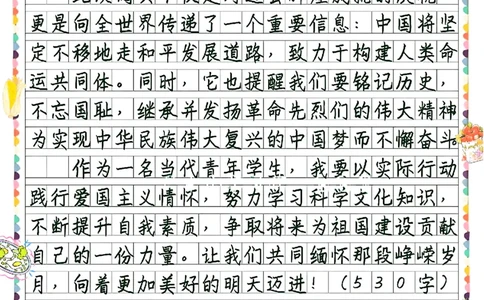 更是向全世界传递了一个重要信息：中国将坚
定不移地走和平发展道路，致力于构建人类命
运共同体。同时，它也提醒我们要铭记历史，
不忘国耻，继承并发扬革命先烈们的伟大精神
为实现中华民族伟大复兴的中国梦而不懈奋斗。
作为一名当代青年学生，我要以实际行动
践行爱国主义情怀，努力学习科学文化知识，
不断提升自我素质，争取将来为祖国建设贡献
自己的一份力量。让我们共同缅怀那段峥嵘岁
月，向着更加美好的明天迈进！（530字）